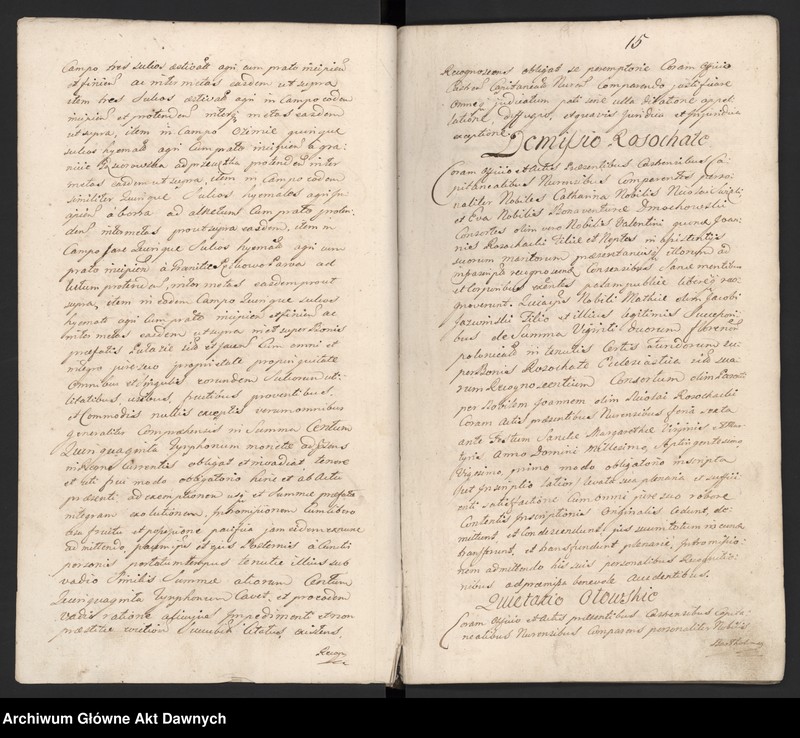 Campo tres sulios aestivales agri cum prato incipien
et finien ac inter metas easdem ut supra
item tres Sulios aestivales agri in Campo eodem
incipien et protenden inter metas easdem
ut supra, item in Campo Ozimie quinque
sulios hyemales agri cum prato incipien a gra-
nicie protenden inter
metas easdem ut supra, item in Campo eodem
similiter Quinque Sulios hyemales agri in-
cipien a borba ad alnetum cum prato proten-
den inter metas prout supra easdem, item in
Campo Jare Quinque Sulios hyemales agri cum
prato incipien à Granitie Parva ad
lutum protenden, inter metas easdem prout
supra, item in eodem Campo Quinque sulios
hyemales agri cum prato incipien et finien ac
inter metas easdem ut supra in et super Bonis
praefatis sit et jacen Cum omni et
integro jure suo proprietate propinquitate
Omnibus et singulis eorundem Suliorum uti-
litatibus, usibus, fructibus proventibus,
et Commodis nullis exceptis verum omnibus
generaliter Comprehensis in Summa Centum
Quinquaginta Tymphonum monetae ad praesens
in Regno Currentis obligat et invadiat, tenere
et uti frui modo obligatorio hinc et ab Actu
praesenti ad exemptionem usque et Summae praefatae
integram exolutionem, Intromissionem cum libero
usu fructu et possessione pacifica jam eidem ex nunc
admittendo, pacemque ipsis et ejus Posteris à cunctis
personis portatum tempus tenutae illius sub
vadio Similis Summae aliarum Centum
Quinquaginta Tymphonum Cavet, et pro eodem
Vadio ratione alicujus Impedimenti et non
praestitae evictionis Succuben citatus existens,
Recogn
15
Recognoscens obligat se peremptorie Coram Officio
Castren Capitaneali Nuren comparendo justificare
Omneque judicatum pati sine ulla dilatione appel-
latione diffugio, et quavis Juridica et Injuridica
exceptione.
Demissio Rosochate
Coram Officio et Actis Praesentibus Castrensibus Ca-
pitanealibus Nurensibus Comparentes perso-
naliter Nobiles Catharina Nobilis Nicolai
et Eva Nobilis Bonaventurae Dmochowski
Consortes olim vero Nobilis Valentini quond Joan-
nis Rosochacki Filiae et Neptes in assistentijs
suorum maritorum praesentaneis illorum ad
infrascripta recognoscen Consensibus Sanae mentibus
et Corporibus existentes palam publice libereque reco-
gnoverunt. Quia ipsi Nobili Mathiae olim Jacobi
Jazwinski Filio et illius legitimis Successori-
bus de Summa Viginti Duorum Florenor
polonical in tenutis Certis Fundorum su-
per Bonis Rosochate Ecclesiastica sub sua-
rum Recognoscentium Consortum olim Parente
per Nobilem Joannem olim Nicolai Rosochacki
Coram Actis praesentibus Nurensibus feria sexta
ante Festum Sanctae Margarethae Virginis et Mar-
tyris Anno Domini Millesimo, Septingentesimo
Vigesimo, primo modo obligatorio inscripta
Prout Inscriptio latior levata sua plenaria et suffici-
enti satisfactione cum omni jure suo robore
Contentis Inscriptionis Originalis Cedunt, di-
mittunt, et Condescendunt, jus suum totum in eundem
transferunt, et transfundunt plenarie, Intromissio-
nem admittendo his suis personalibus Recognitio-
nibus ad praemissa benevole accedentibus.
Quietatio Ołowskie
Coram Officio et Actis praesentibus Castrensibus Capita-
nealibus Nurensibus Comparens personaliter Nobilis